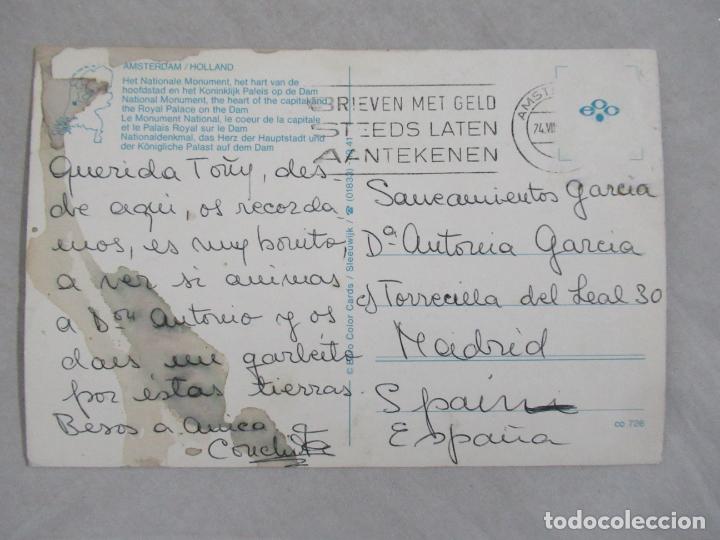 AMSTERDAM / HOLLAND
Het Nationale Monument, het hart van de
hoofdstad en het Koninklijk Paleis op de Dam
National Monument, the heart of the capital and
the Royal Palace on the Dam
Le Monument National, le coeur de la capitale
et le Palais Royal sur le Dam
Nationaldenkmal, das Herz der Hauptstadt und
der Königliche Palast auf dem Dam
BRIEVEN MET GELD
STEEDS LATEN
AANTEKENEN
AMST
74.VII
Querida Toñy, des-
de aqui, os recorda
mos, es muy bonito,
a ver si animas
a Don Antonio y os
dais un garbeito
por éstas tierras.
Besos a
Conchita
© Color Cards / Sleeuwijk / ☎ (01833)
Saneamientos Garcia
Dª Antonia Garcia
c/ Torrecilla del Leal 30
Madrid
Spain
España
co 726
todocoleccion.net